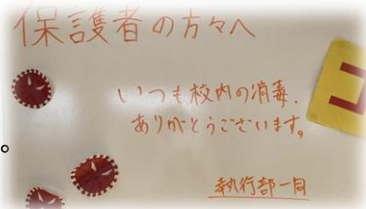 保護者の方々へ
いつも校内の消毒、
ありがとうございます。
執行部一同
コ